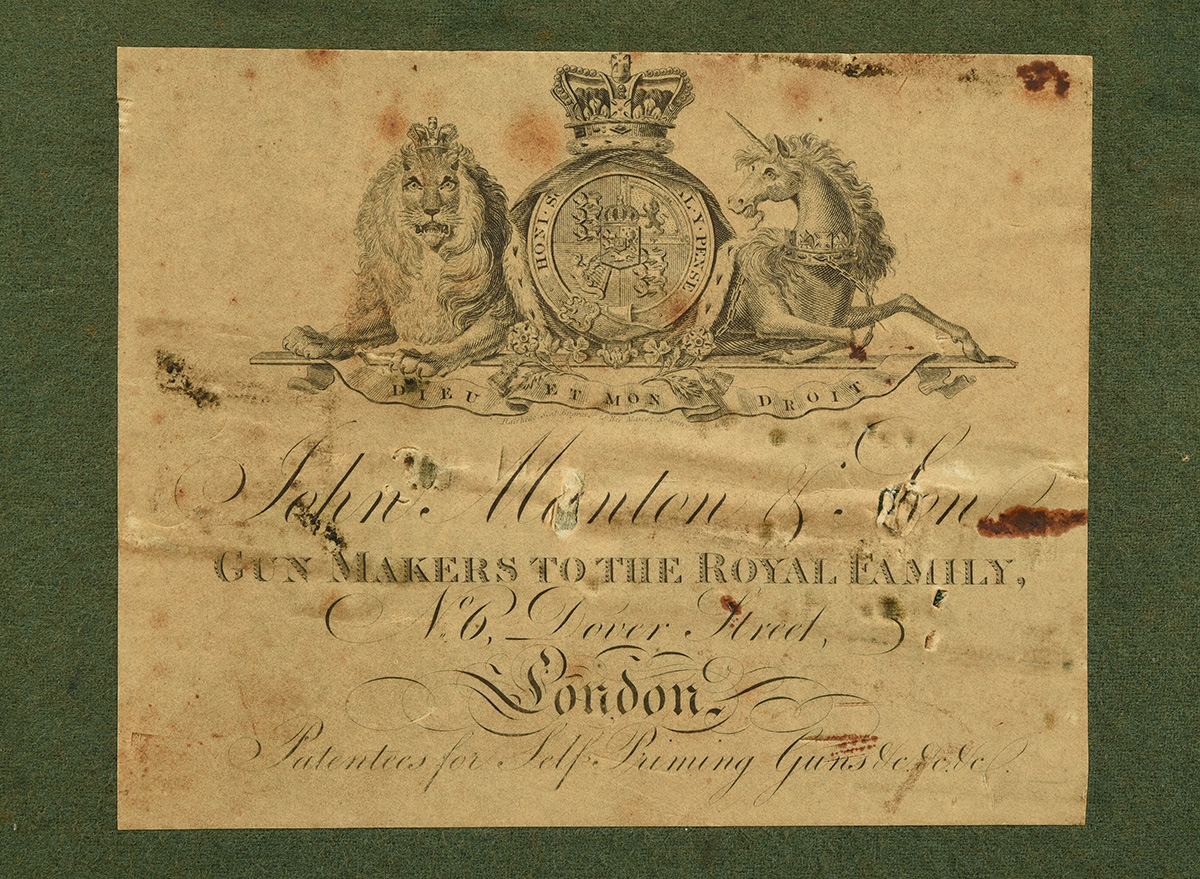 HONI. S AL. Y. PENSE
DIEU ET MON DROIT
John Manton & Son
GUN MAKERS TO THE ROYAL FAMILY,
No. 6, Dover Street,
London.
Patentees for Self Priming Guns &c. &c. &c.